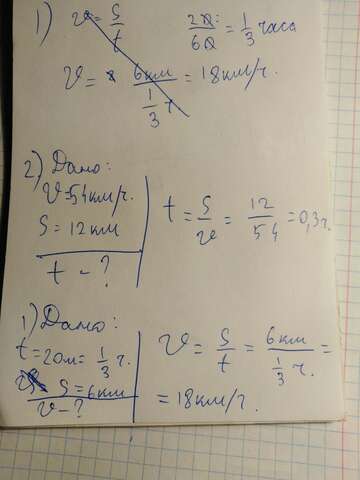 1) v = S/t 20/60 = 1/3 часа
v = 6км / 1/3 ч = 18км/ч.
2) Дано:
v=54км/ч.
S = 12км
t - ?
t = S/v = 12/54 = 0,3ч.
1) Дано:
t=20м= 1/3 ч.
S = 6км
v - ?
v = S/t = 6км / 1/3 ч. =
= 18км/ч.